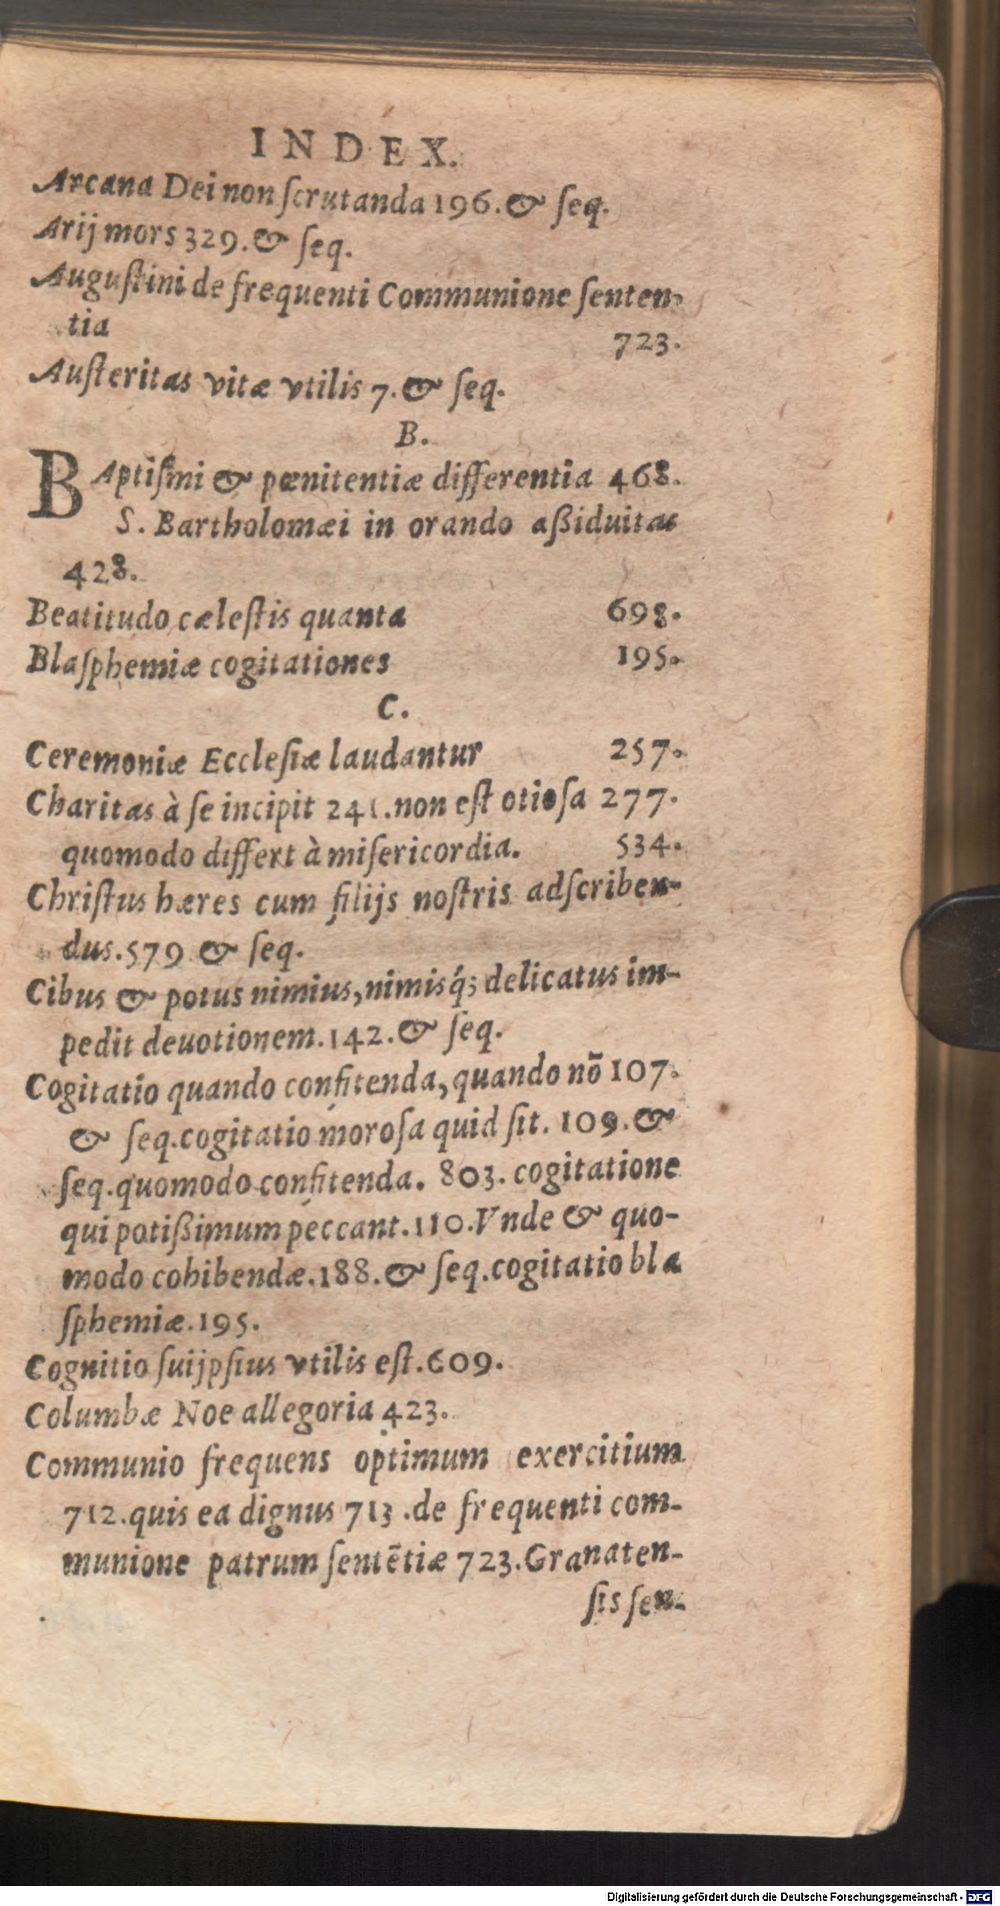 INDEX.
Arcana Dei non ſcrutanda 196. & ſeq.
Arij mors 329. & ſeq.
Auguſtini de frequenti Communione ſenten-
tia 723.
Auſteritas vitæ vtilis 7. & ſeq.
B.
BAptiſmi & pœnitentiæ differentia 468.
S. Bartholomæi in orando aßiduitas
428.
Beatitudo cæleſtis quanta 698.
Blaſphemiæ cogitationes 195.
C.
Ceremoniæ Eccleſiæ laudantur 257.
Charitas à ſe incipit 241. non eſt otioſa 277.
quomodo differt à miſericordia. 534.
Chriſtus hæres cum filijs noſtris adſcriben-
dus. 579 & ſeq.
Cibus & potus nimius, nimisq́; delicatus im-
pedit deuotionem. 142. & ſeq.
Cogitatio quando confitenda, quando nõ 107.
& ſeq. cogitatio moroſa quid ſit. 109. &
ſeq. quomodo confitenda. 803. cogitatione
qui potißimum peccant. 110. Vnde & quo-
modo cohibendæ. 188. & ſeq. cogitatio bla
ſphemiæ. 195.
Cognitio ſuijpſius vtilis eſt. 609.
Columbæ Noe allegoria 423.
Communio frequens optimum exercitium
712. quis ea dignus 713. de frequenti com-
munione patrum ſentẽtiæ 723. Granaten-
ſis ſen-
Digitalisierung gefördert durch die Deutsche Forschungsgemeinschaft - DFG